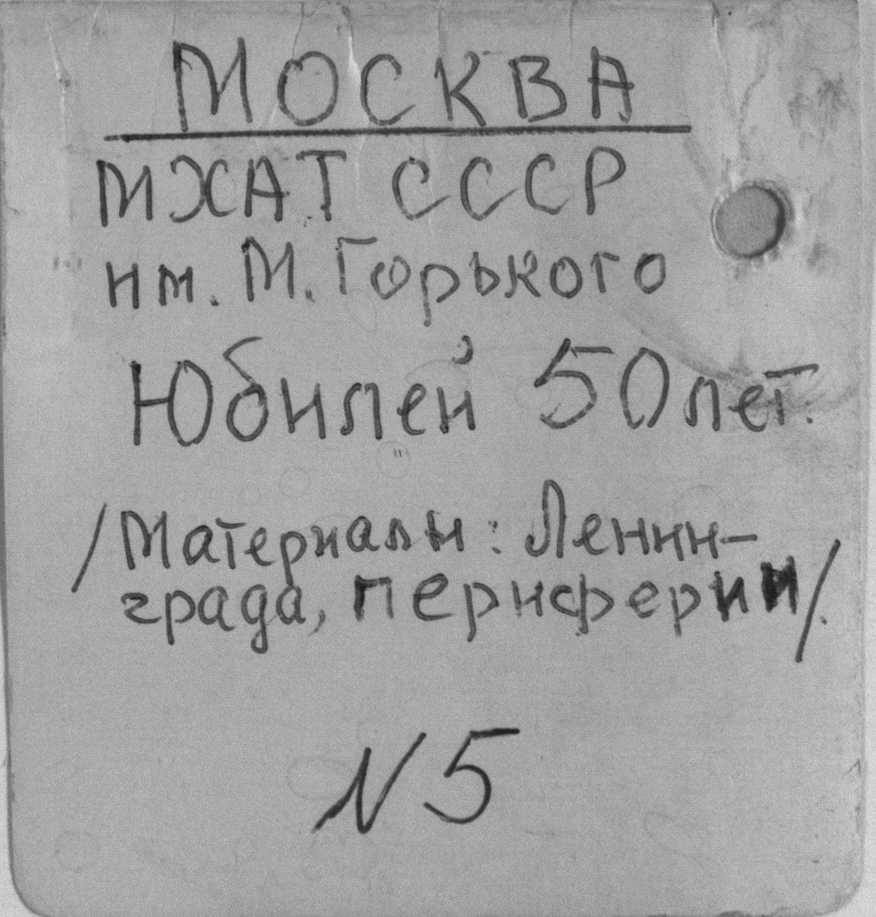 МОСКВА
МХАТ СССР
им. М. Горького
Юбилей 50 лет.
/Материалы: Ленин-
града, периферии/.
N 5